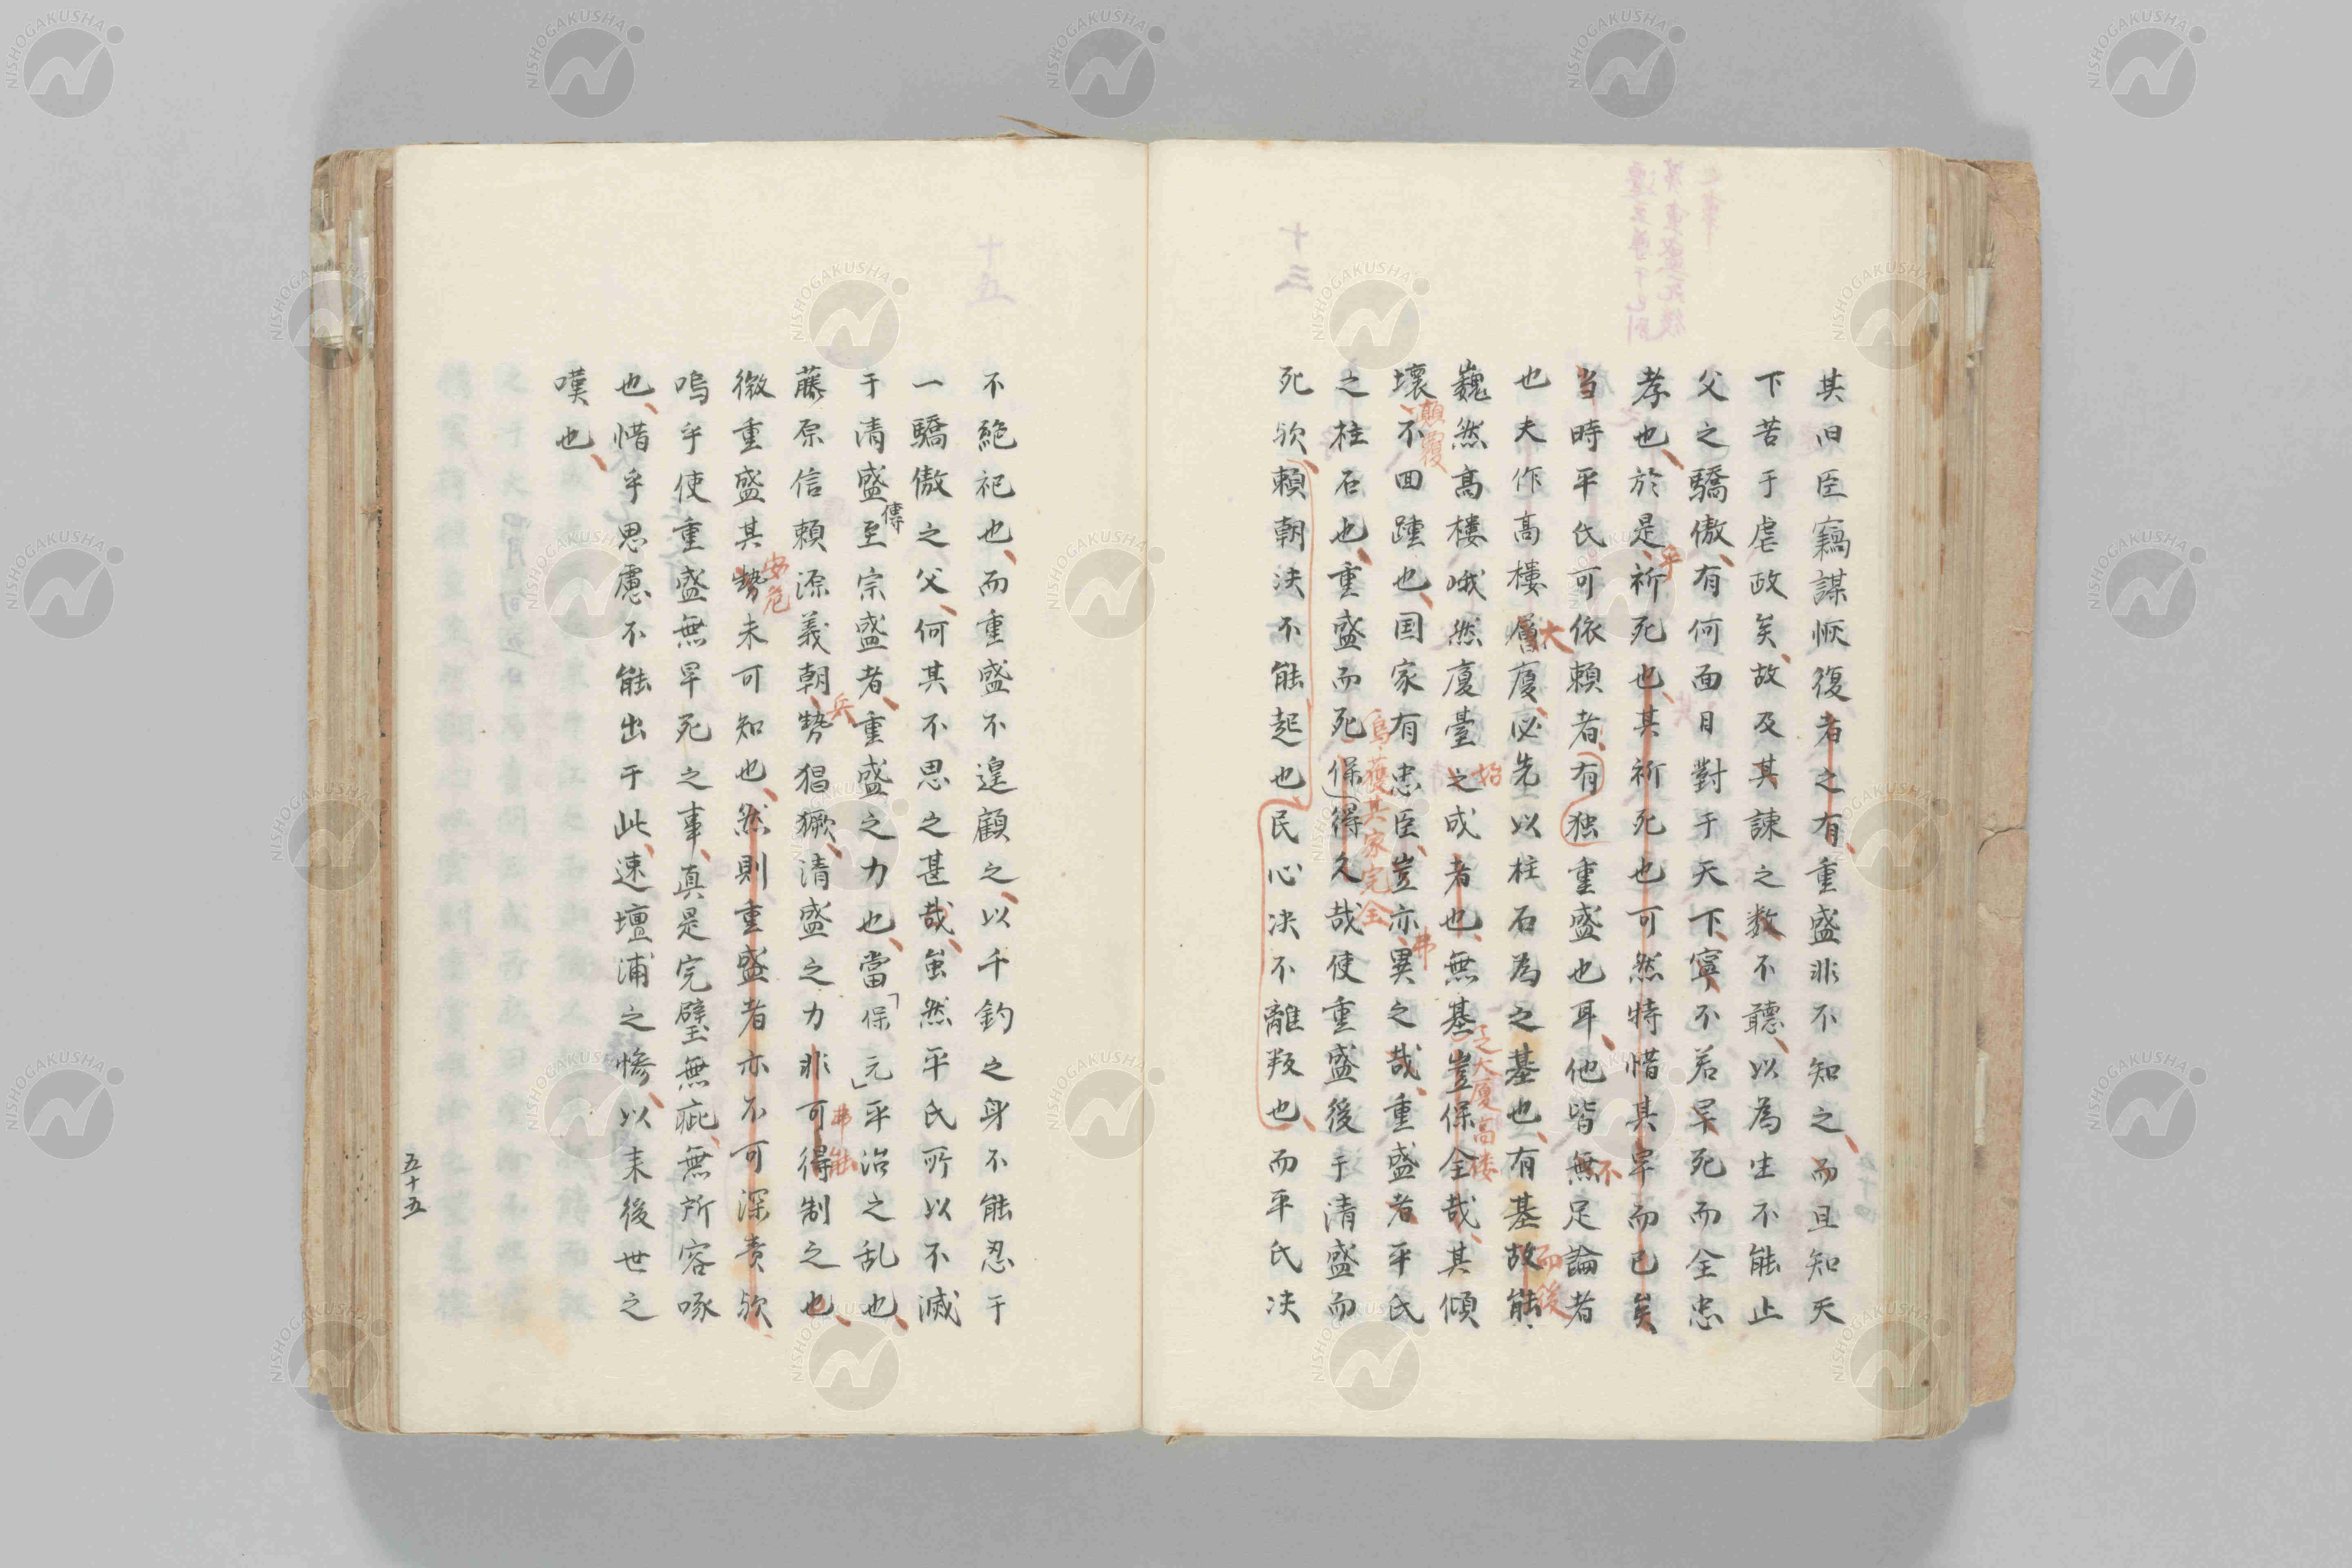 其旧臣竊謀恢復者之有重盛非不知之而且知天
下苦于虐政矣故及其諌之数不聴以為生不能止
父之驕傲有何面目對于天下寧不若早死而全忠
孝也於是祈死也其祈死也可然特惜其早而已矣
平
当時平氏可依頼者有独重盛也耳他皆無足論者
不
也夫作高樓層厦必先以柱石為之基也有基故能
大
而後
巍然高樓峨然厦臺之成者也無基豈保全哉其傾
始
之大厦高楼
壞不回踵也国家有忠臣豈亦異之哉重盛者平氏
顛覆
弗
之柱石也重盛而死保得久哉使重盛後于清盛而
焉獲其家完全
死欤頼朝决不能起也民心决不離叛也而平氏决
十三
不絶祀也而重盛不遑顧之以千鈞之身不能忍于
一驕傲之父何其不思之甚哉虽然平氏所以不滅
于清盛至宗盛者重盛之力也當「保元」平治之乱也
傳
藤原信頼源義朝勢猖獗清盛之力非可得制之也
兵
弗能
微重盛其勢未可知也然則重盛者亦不可深責欤
安危
嗚乎使重盛無早死之事真是完璧無疵無所容啄
也惜乎思慮不能出于此速壇浦之惨以来後世之
嘆也
十五
五十五